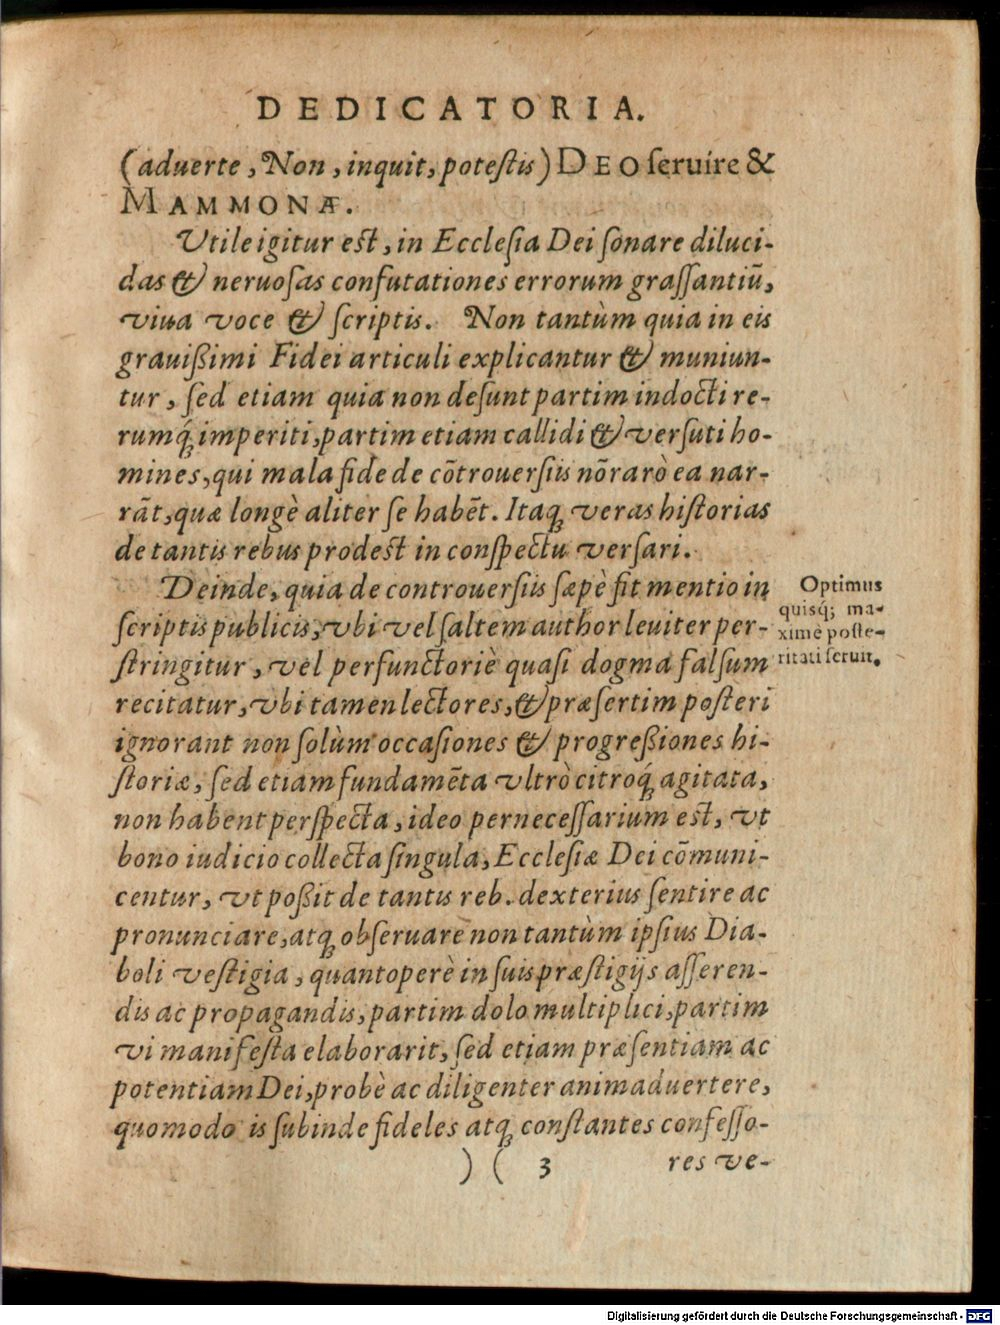 DEDICATORIA.
(aduerte, Non, inquit, potestis) DEO seruíre &
MAMMONÆ.
Vtile igitur est, in Ecclesia Dei sonare diluci-
das & neruosas confutationes errorum grassantiū,
viua voce & scriptis. Non tantùm quia in eis
grauißimi Fidei articuli explicantur & muniun-
tur, sed etiam quia non desunt partim indocti re-
rumq́; imperiti, partim etiam callidi & versuti ho-
mines, qui mala fide de cōtrouersiis nō rarò ea nar-
rāt, quæ longè aliter se habēt. Itaq; veras historias
de tantis rebus prodest in conspectu versari.
Deinde, quia de controuersiis sæpè fit mentio in
scriptis publicis, vbi vel saltem author leuiter per-
stringitur, vel perfunctoriè quasi dogma falsum
recitatur, vbi tamen lectores, & præsertim posteri
ignorant non solùm occasiones & progreßiones hi-
storiæ, sed etiam fundamēta vltrò citroq́; agitata,
non habent perspecta, ideo pernecessarium est, vt
bono iudicio collecta singula, Ecclesiæ Dei cōmuni-
centur, vt poßit de tantis reb. dexterius sentire ac
pronunciare, atq; obseruare non tantùm ipsius Dia-
boli vestigia, quantoperè in suis præstigijs asseren-
dis ac propagandis, partim dolo multiplici, partim
vi manifesta elaborarit, sed etiam præsentiam ac
potentiam Dei, probè ac diligenter animaduertere,
quomodo is subinde fideles atq; constantes confesso-
)( 3 res ve-
Optimus
quisq; ma-
ximè poste-
ritati seruit.
Digitalisierung gefördert durch die Deutsche Forschungsgemeinschaft - DFG